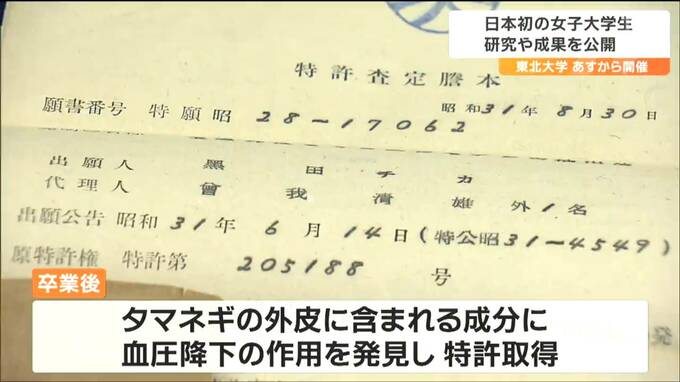 日本初の女子大学生
研究や成果を公開
東北大学 あすから開催
特許査定謄本
昭和31年8月30日
願書番号 特願昭 28-17062
出願人 黒田チカ
代理人 曾我清雄 外1名
出願公告 昭和31年6月14日(特公昭31-4549)
原特許権 特許第 205188 号
卒業後
タマネギの外皮に含まれる成分に
血圧降下の作用を発見し 特許取得